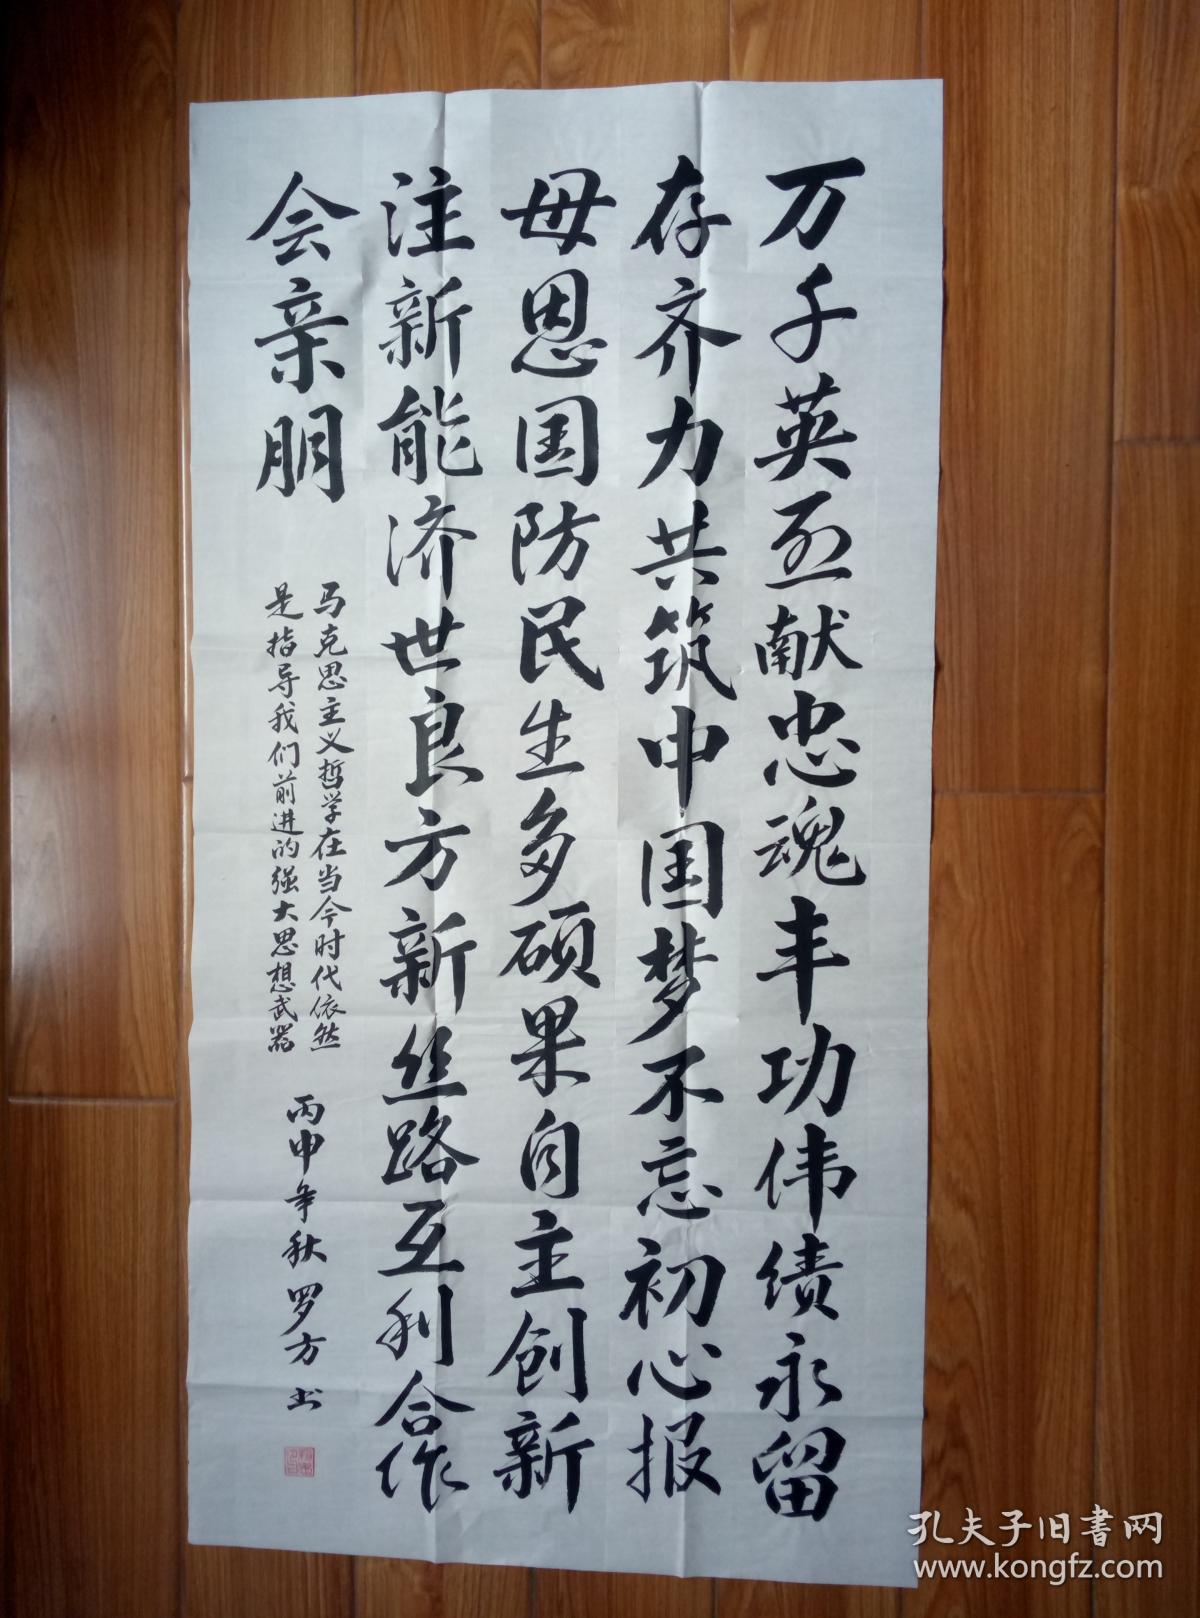 万千英烈献忠魂丰功伟绩永留
存齐力共筑中国梦不忘初心报
母恩国防民生多硕果自主创新
注新能济世良方新丝路互利合作
会亲朋
马克思主义哲学在当今时代依然
是指导我们前进的强大思想武器
丙申年秋罗方书
孔夫子旧書网
www.kongfz.com